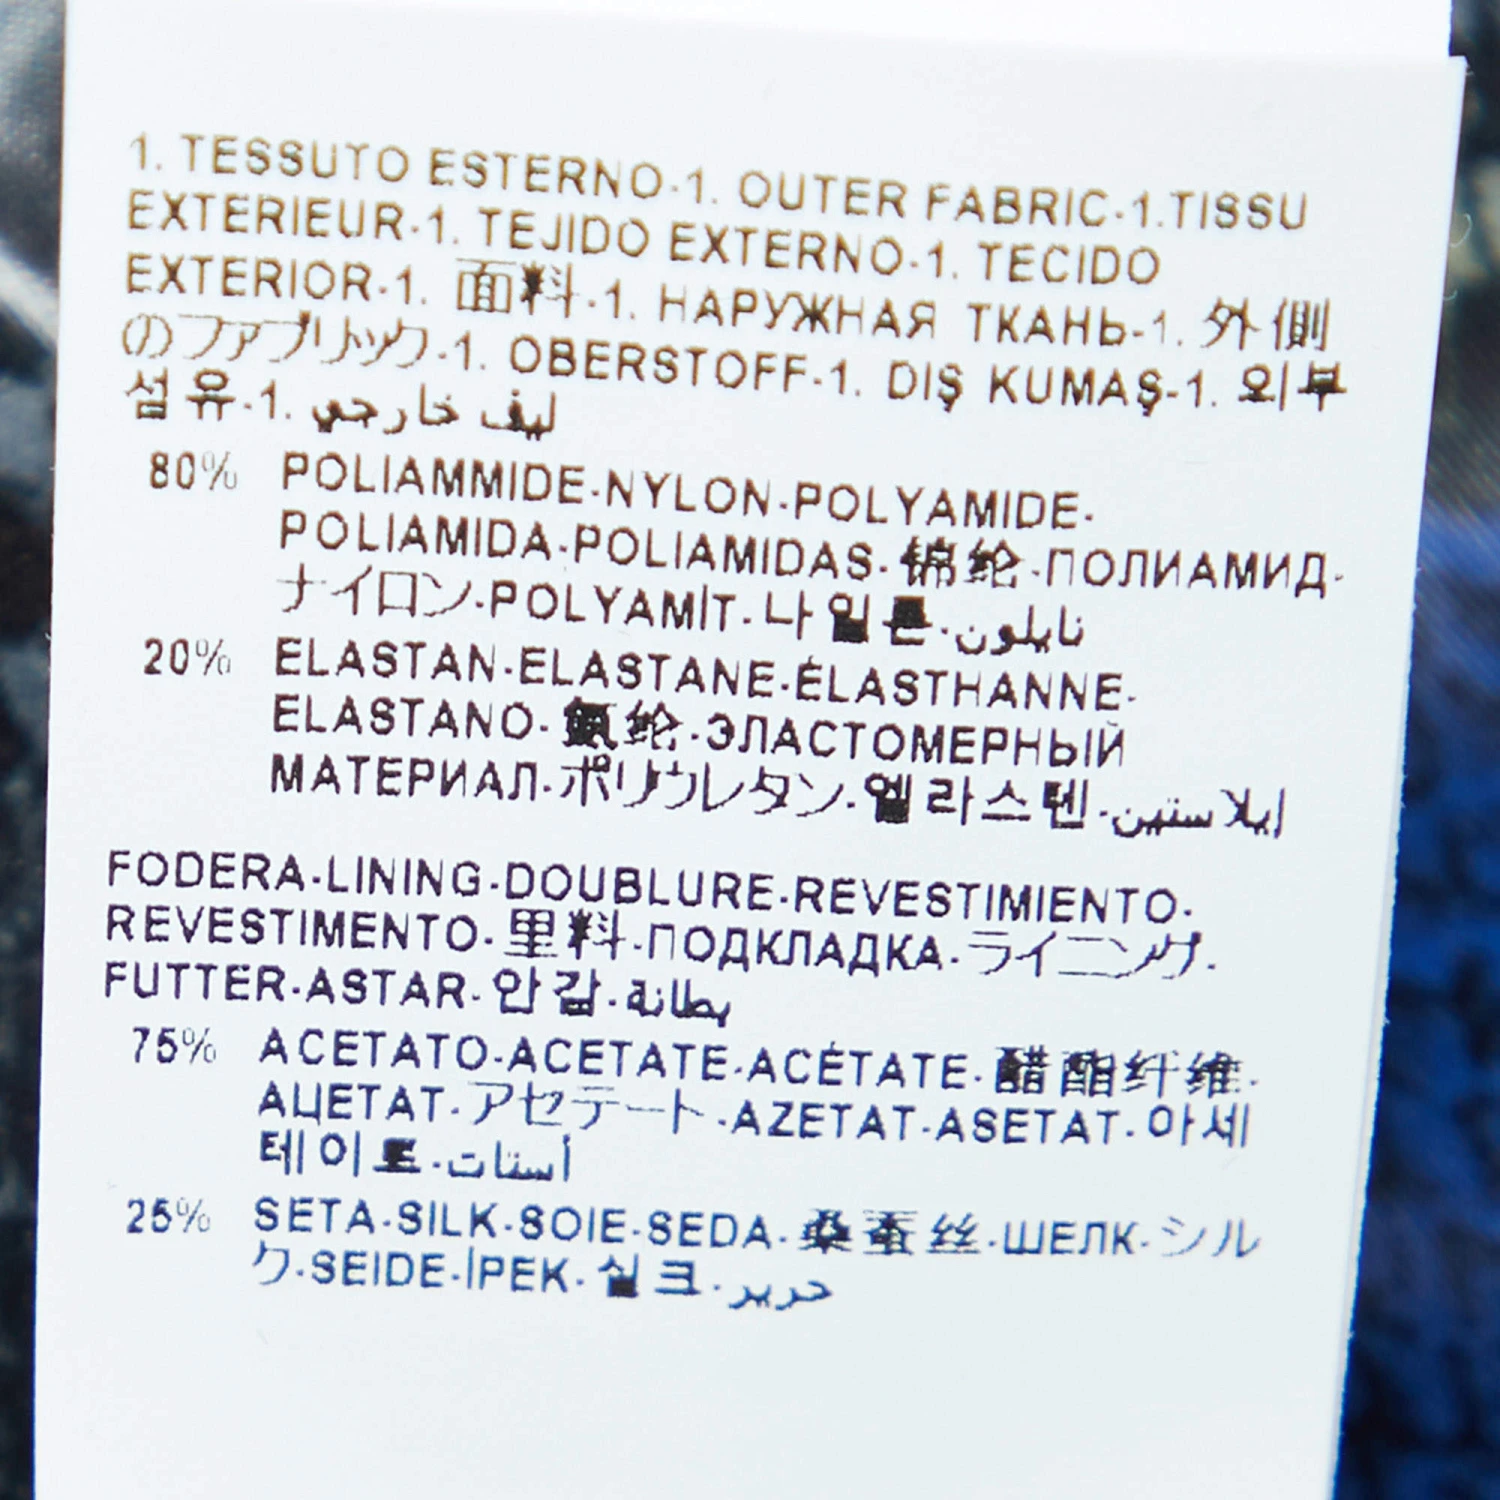 1. TESSUTO ESTERNO-1. OUTER FABRIC-1.TISSU
EXTERIEUR-1. TEJIDO EXTERNO-1. TECIDO
EXTERIOR-1. 面料-1. НАРУЖНАЯ ТКАНЬ-1. 外側
のファブリック-1. OBERSTOFF-1. DIŞ KUMAŞ-1. 외부
섬유-1. ليف خارجي
80% POLIAMMIDE-NYLON-POLYAMIDE-
POLIAMIDA-POLIAMIDAS-锦纶-ПОЛИАМИД-
ナイロン-POLYAMİT-나일론-نايلون
20% ELASTAN-ELASTANE-ÉLASTHANNE-
ELASTANO-氨纶-ЭЛАСТОМЕРНЫЙ
МАТЕРИАЛ-ポリウレタン-엘라스텐-إيلاستين
FODERA-LINING-DOUBLURE-REVESTIMIENTO-
REVESTIMENTO-里料-ПОДКЛАДКА-ライニング-
FUTTER-ASTAR-안감-بطانة
75% ACETATO-ACETATE-ACÉTATE-醋酯纤维-
АЦЕТАТ-アセテート-AZETAT-ASETAT-아세
테이트-أستات
25% SETA-SILK-SOIE-SEDA-桑蚕丝-ШЕЛК-シル
ク-SEIDE-İPEK-실크-حرير